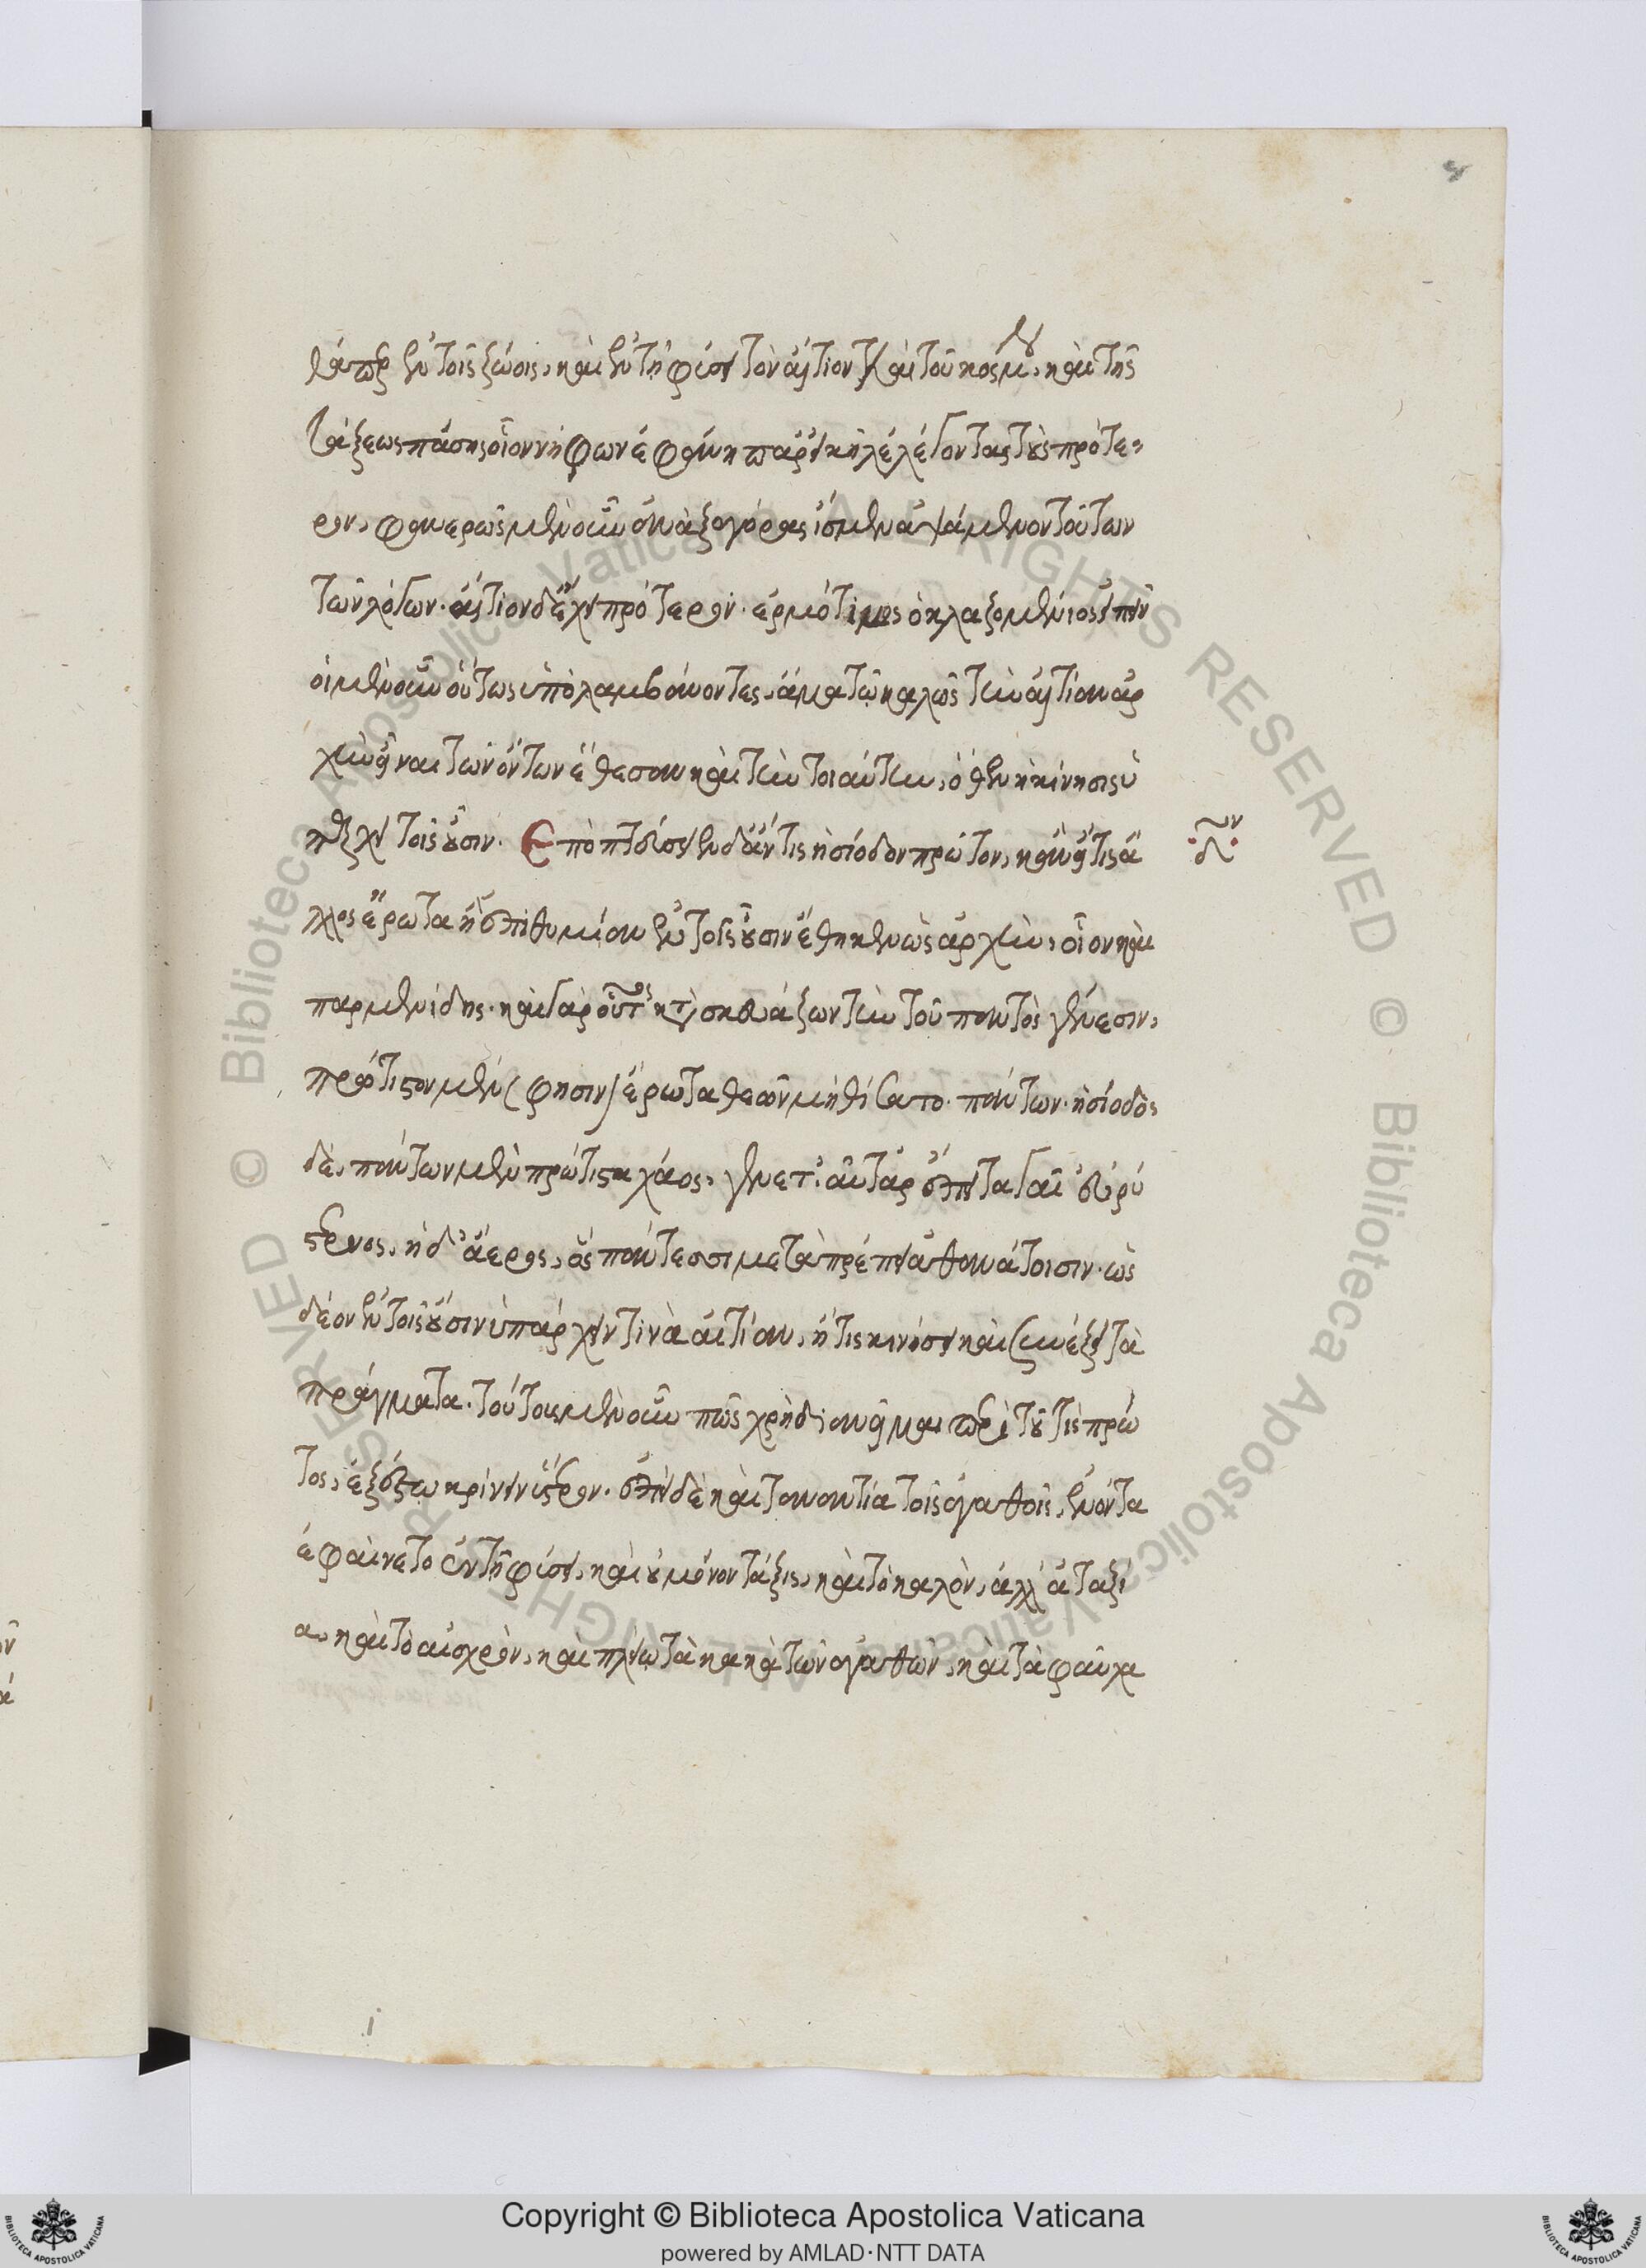 θάπερ ἐν τοῖς ζώοις, καὶ ἐν τῇ φύσει τὸν αἴτιον καὶ τοῦ κόσμου, καὶ τῆς
τάξεως πάσης οἷον νήφων ἐφάνη παρ' εἰκῆ λέγοντας τοὺς πρότε-
ρον, φανερῶς μὲν οὖν ἀναξαγόραν ἴσμεν ἁψάμενον τούτων
τῶν λόγων. αἰτίον δ' ἔχει πρότερον. ἑρμότιμος ὁ κλαζομένιος εἰπεῖν
οἱ μὲν οὖν οὕτως ὑπολαμβάνοντες, ἅμα τῷ καλῶς τὴν αἰτίαν ἀρ
χὴν εἶναι τῶν ὄντων ἔθεσαν καὶ τὴν τοιαύτην, ὅθεν ἡ κίνησις ὑ
πάρχει τοῖς οὖσιν. Ὑποπτεύσειε δ' ἄν τις ἡσίοδον πρῶτον, κἂν εἴ τις ἄ
λλος ἔρωτα ἢ ἐπιθυμίαν ἐν τοῖς οὖσιν ἔθηκεν ὡς ἀρχὴν, οἷον καὶ
παρμενίδης. καὶ γὰρ οὗτος κατασκευάζων τὴν τοῦ παντὸς γένεσιν,
πρώτιστον μὲν (φησιν) ἔρωτα θεῶν μητίσατο πάντων. ἡσίοδος
δὲ, πάντων μὲν πρώτιστα χάος, γένετ'. αὐτὰρ ἔπειτα γαῖ' εὐρύ
στερνος, ἠδ' ἔρος, ὃς πάντεσσι μεταπρέπει ἀθανάτοισιν. ὡς
δέον ἐν τοῖς οὖσιν ὑπάρχειν τινὰ αἰτίαν, ἥτις κινήσει καὶ συνέξει τὰ
πράγματα. τούτους μὲν οὖν πῶς χρὴ διανεῖμαι περὶ τοῦ τίς πρῶ
τος, ἐξέστω κρίνειν ὕστερον. ἐπεὶ δὲ καὶ τἀναντία τοῖς ἀγαθοῖς, ἐνόντα
ἐφαίνετο ἐν τῇ φύσει, καὶ οὐ μόνον τάξις, καὶ τὸ καλὸν, ἀλλ' ἀταξί
α, καὶ τὸ αἰσχρὸν, καὶ πλείω τὰ κακὰ τῶν ἀγαθῶν, καὶ τὰ φαῦλα